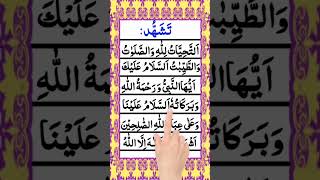 تَشَهُّد:
اَلتَّحِيَّاتُ لِلّٰهِ وَالصَّلَوٰتُ
وَالطَّيِّبٰتُ اَلسَّلَامُ عَلَيْكَ
اَيُّهَا النَّبِيُّ وَرَحْمَةُ اللّٰهِ
وَبَرَكَاتُهٗ اَلسَّلَامُ عَلَيْنَا
وَعَلٰى عِبَادِ اللّٰهِ الصّٰلِحِيْنَ
اِلَّا اللّٰهُ